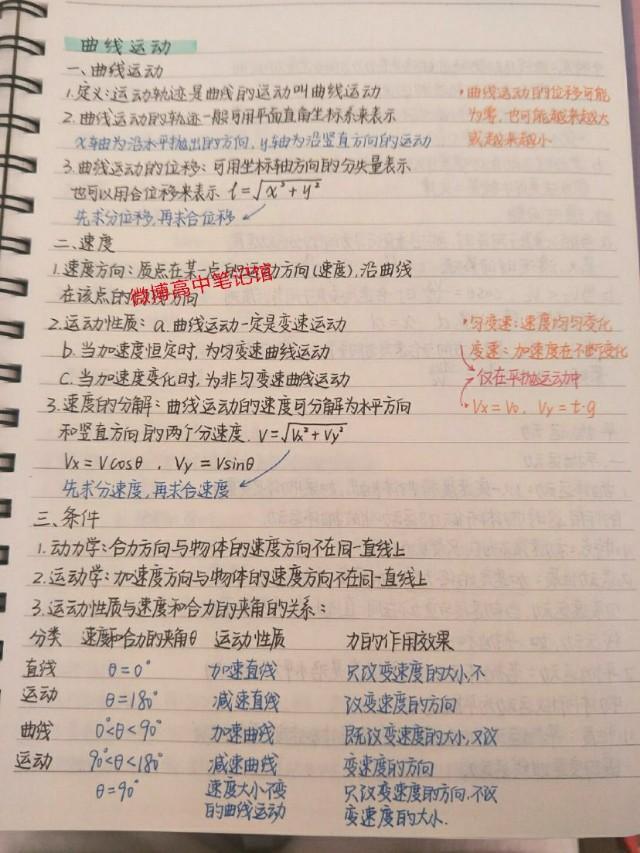 曲线运动
一、曲线运动
1.定义:运动轨迹是曲线的运动叫曲线运动
2.曲线运动的轨迹一般可用平面直角坐标系来表示
x轴为沿水平抛出的方向,y轴为沿竖直方向的运动
·曲线运动的位移可能
为零,也可能越来越大
或越来越小
3.曲线运动的位移:可用坐标轴方向的分矢量表示
也可以用合位移来表示 l=√x²+y²
先求分位移,再求合位移
二、速度
1.速度方向:质点在某一点的运动方向(速度),沿曲线
在该点的线方向
微博高中笔记馆
2.运动性质:a.曲线运动一定是变速运动
b.当加速度恒定时,为匀变速曲线运动
c.当加速度变化时,为非匀变速曲线运动
·匀变速:速度均匀变化
变速:加速度在不断变化
仅在平抛运动中
Vx=V₀, Vy=t·g
3.速度的分解:曲线运动的速度可分解为水平方向
和竖直方向的两个分速度. V=√Vx²+Vy²
Vx=Vcosθ , Vy=Vsinθ
先求分速度,再求合速度
三、条件
1.动力学:合力方向与物体的速度方向不在同一直线上
2.运动学:加速度方向与物体的速度方向不在同一直线上
3.运动性质与速度和合力的夹角的关系:
分类 速度和合力的夹角θ 运动性质 力的作用效果
直线 θ=0° 加速直线 只改变速度的大小,不
运动 θ=180° 减速直线 改变速度的方向
曲线 0°<θ<90° 加速曲线 既改变速度的大小,又改
运动 90°<θ<180° 减速曲线 变速度的方向
θ=90° 速度大小不变 只改变速度的方向,不改
的曲线运动 变速度的大小.